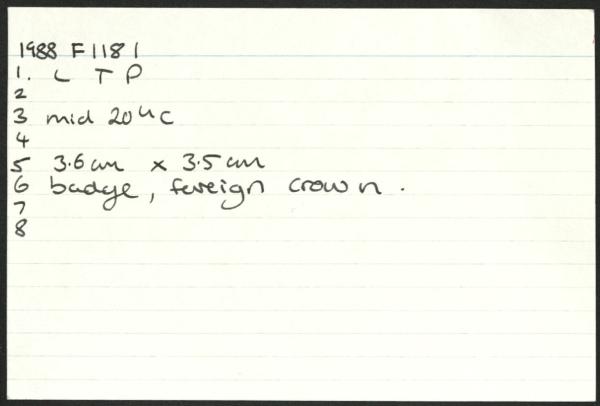 1988 F1181
1. L T P
2
3 mid 20th C
4
5 3.6cm x 3.5cm
6 badge, foreign crown.
7
8